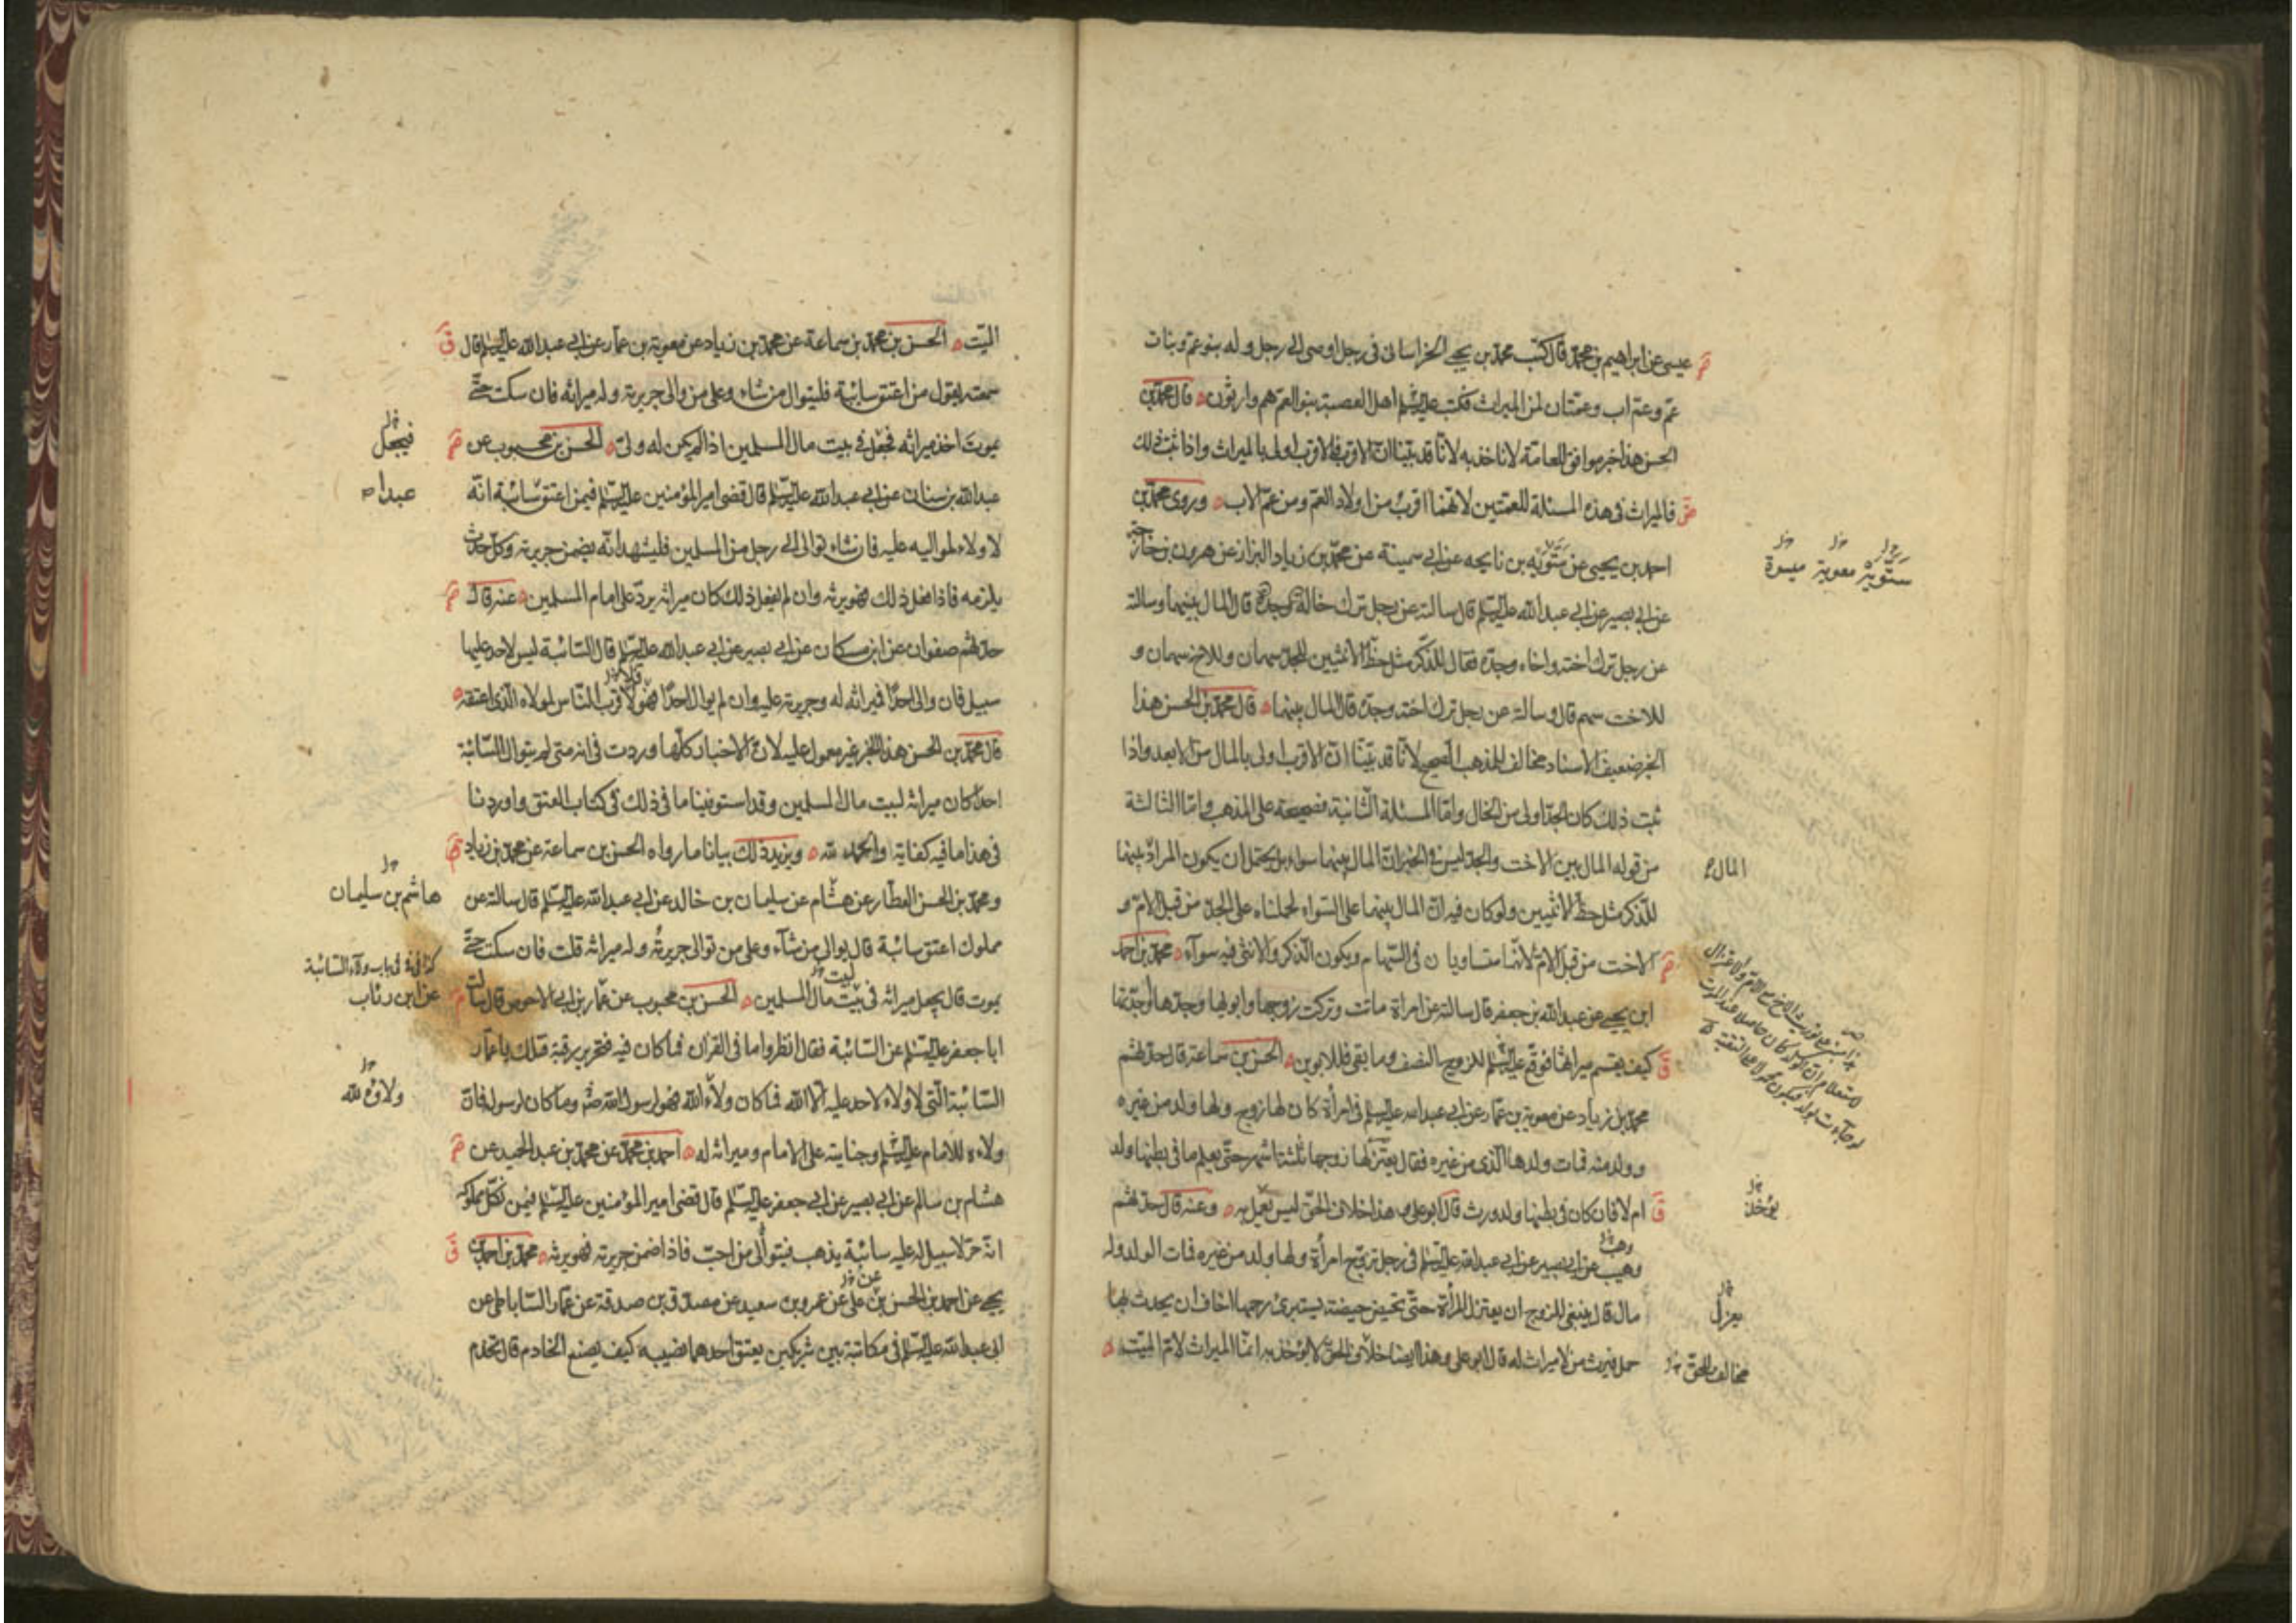 عيسى عن ابراهيم بن محمد قال كتب محمد بن يحيى الخراساني في رجل اوصى الى رجل وله بنو عم وبنات
عم وعم اب وعمتان لمن الميراث فكتب عليه السلم اهل العصبة بنو العم هم وارثون قال محمد بن
الحسن هذا خبر موافق للعامة لا ناخذ به لانا قد بينا ان الاقرب فالاقرب اولى بالميراث واذا ثبت ذلك
فالميراث في هذه المسئلة للعمتين لانهما اقرب من اولاد العم ومن عم الاب وروى محمد بن
احمد بن يحيى عن ستويه بن نايحه عن ابي سمينة عن محمد بن زياد البزاز عن هرون بن خارجة
عن ابي بصير عن ابي عبد الله عليه السلم قال سالته عن رجل ترك خاله وجده قال المال بينهما وسالته
عن رجل ترك اخته واخاه وجده فقال للذكر مثل حظ الانثيين للجد سهمان وللاخ سهمان و
للاخت سهم قال وسالته عن رجل ترك اخته وجده قال المال بينهما قال محمد بن الحسن هذا
الخبر ضعيف الاسناد مخالف للمذهب الصحيح لانا قد بينا ان الاقرب اولى بالمال من الابعد واذا
ثبت ذلك كان الجد اولى من الخال واما المسئلة الثانية فصحيحة على المذهب واما الثالثة
من قوله المال بين الاخت والجد ليس في الخبر ان المال بينهما سواء بل يحتمل ان يكون المراد بينهما
للذكر مثل حظ الانثيين ولو كان فيه ان المال بينهما على السواء لحملناه على الجد من قبل الام و
الاخت من قبل الام لانهما متساويان في السهام ويكون الذكر والانثى فيه سوآء محمد بن احمد
ابن يحيى عن عبد الله بن جعفر قال سالته عن امراة ماتت وتركت زوجها وابويها وجدها او جدتها
كيف يقسم ميراثها فوقع عليه السلم للزوج النصف وما بقي فللابوين الحسن بن سماعة قال حدثهم
محمد بن زياد عن معوية بن عمار عن ابي عبد الله عليه السلم في امرأة كان لها زوج ولها ولد من غيره
وولد منه فمات ولدها الذي من غيره فقال يعتزلها زوجها ثلثة اشهر حتى يعلم ما في بطنها ولد
ام لا فان كان في بطنها ولد ورث قال ابو على هذا خلاف الحق ليس يعمل به وعنه قال حدثهم
وهيب عن ابي بصير عن ابي عبد الله عليه السلم في رجل تزوج امرأة ولها ولد من غيره فمات الولد وله
مال قال ينبغي للزوج ان يعتزل المرأة حتى تحيض حيضة يستبرئ رحمها اخاف ان يحدث بها
حمل فيرث من لا ميراث له قال ابو على وهذا ايضا خلاف الحق لا يؤخذ به انما الميراث لام الميت
ستويه معوية ميسرة
المال
يؤخذ
يعزل
مخالف للحق
الميت الحسن بن محمد بن سماعة عن محمد بن زياد عن معوية بن عمار عن ابي عبد الله عليه السلم قال
سمعته يقول من اعتق سائبة فليتوال من شاء وعلى من والى جريرته وله ميراثه فان سكت حتى
يموت اخذ ميراثه فجعل في بيت مال المسلمين اذا لم يكن له ولي الحسن بن محبوب عن
عبد الله بن سنان عن ابي عبد الله عليه السلم قال قضى امير المؤمنين عليه السلم فيمن اعتق سائبة انه
لا ولاء لمواليه عليه فان شاء توالى الى رجل من المسلمين فليشهد انه يضمن جريرته وكل حدث
يلزمه فاذا فعل ذلك فهو يرثه وان لم يفعل ذلك كان ميراثه يرد على امام المسلمين عنه قال
حدثهم صفوان عن ابن مسكان عن ابي بصير عن ابي عبد الله عليه السلم قال السائبة ليس لاحد عليها
سبيل فان والى احدا فميراثه له وجريرته عليه وان لم يوال احدا فهو لاقرب الناس لمولاه الذي اعتقه
قال محمد بن الحسن هذا الخبر غير معمول عليه لان الاخبار كلها وردت في انه متى لم يتوال السائبة
احدا كان ميراثه لبيت مال المسلمين وقد استوفينا ما في ذلك في كتاب العتق واوردنا
في هذا ما فيه كفاية والحمد لله ويزيد ذلك بيانا ما رواه الحسن بن سماعة عن محمد بن زياد
ومحمد بن الحسن العطار عن هشام عن سليمان بن خالد عن ابي عبد الله عليه السلم قال سالته عن
مملوك اعتق سائبة قال يوالي من شآء وعلى من توالى جريرته وله ميراثه قلت فان سكت حتى
يموت قال يجعل ميراثه في بيت مال المسلمين الحسن بن محبوب عن عمار بن ابي الاحوص قال سالت
ابا جعفر عليه السلم عن السائبة فقال انظروا ما في القران فما كان فيه فتحرير رقبة فتلك يا عمار
السائبة التي لا ولاء لاحد عليه الا الله فما كان ولاؤه لله فهو لرسول الله وما كان لرسوله فان
ولاءه للامام عليه السلم وجنايته على الامام وميراثه له احمد بن محمد عن محمد بن عبد الحميد عن
هشام بن سالم عن ابي بصير عن ابي جعفر عليه السلم قال قضى امير المؤمنين عليه السلم فيمن نكل بمملوكه
انه حر لا سبيل له عليه سائبة يذهب فيتوالى من احب فاذا ضمن جريرته فهو يرثه محمد بن احمد بن
يحيى عن احمد بن الحسن بن علي عن عمرو بن سعيد عن مصدق بن صدقة عن عمار الساباطي عن
ابي عبد الله عليه السلم في مكاتبة بين شريكين يعتق احدهما نصيبه كيف يصنع الخادم قال تخدم
فيجعل
عبد الله
هاشم بن سليمان
عن ابن رئاب
ولاؤه لله